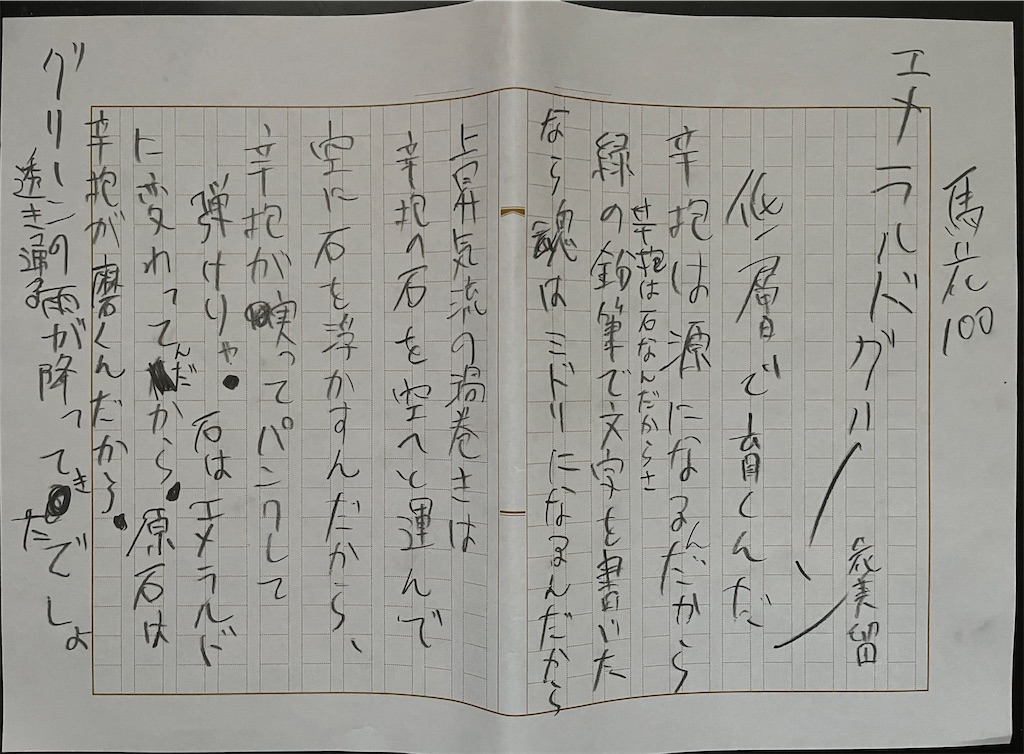 馬花100
エメラルドグリーン
衣美留
低層で育くんだ
辛抱は源になるんだから
辛抱は石なんだからさ
緑の鉛筆で文字を書いた
なら魂はミドリになるんだから
上昇気流の渦巻きは
辛抱の石を空へと運んで
空に石を浮かすんだから、
辛抱が実ってパンクして
弾けりゃ 石はエメラルド
に変わってんだから 原石は
辛抱が磨くんだから
グリーンの雨が降ってきたでしょ
透き通る